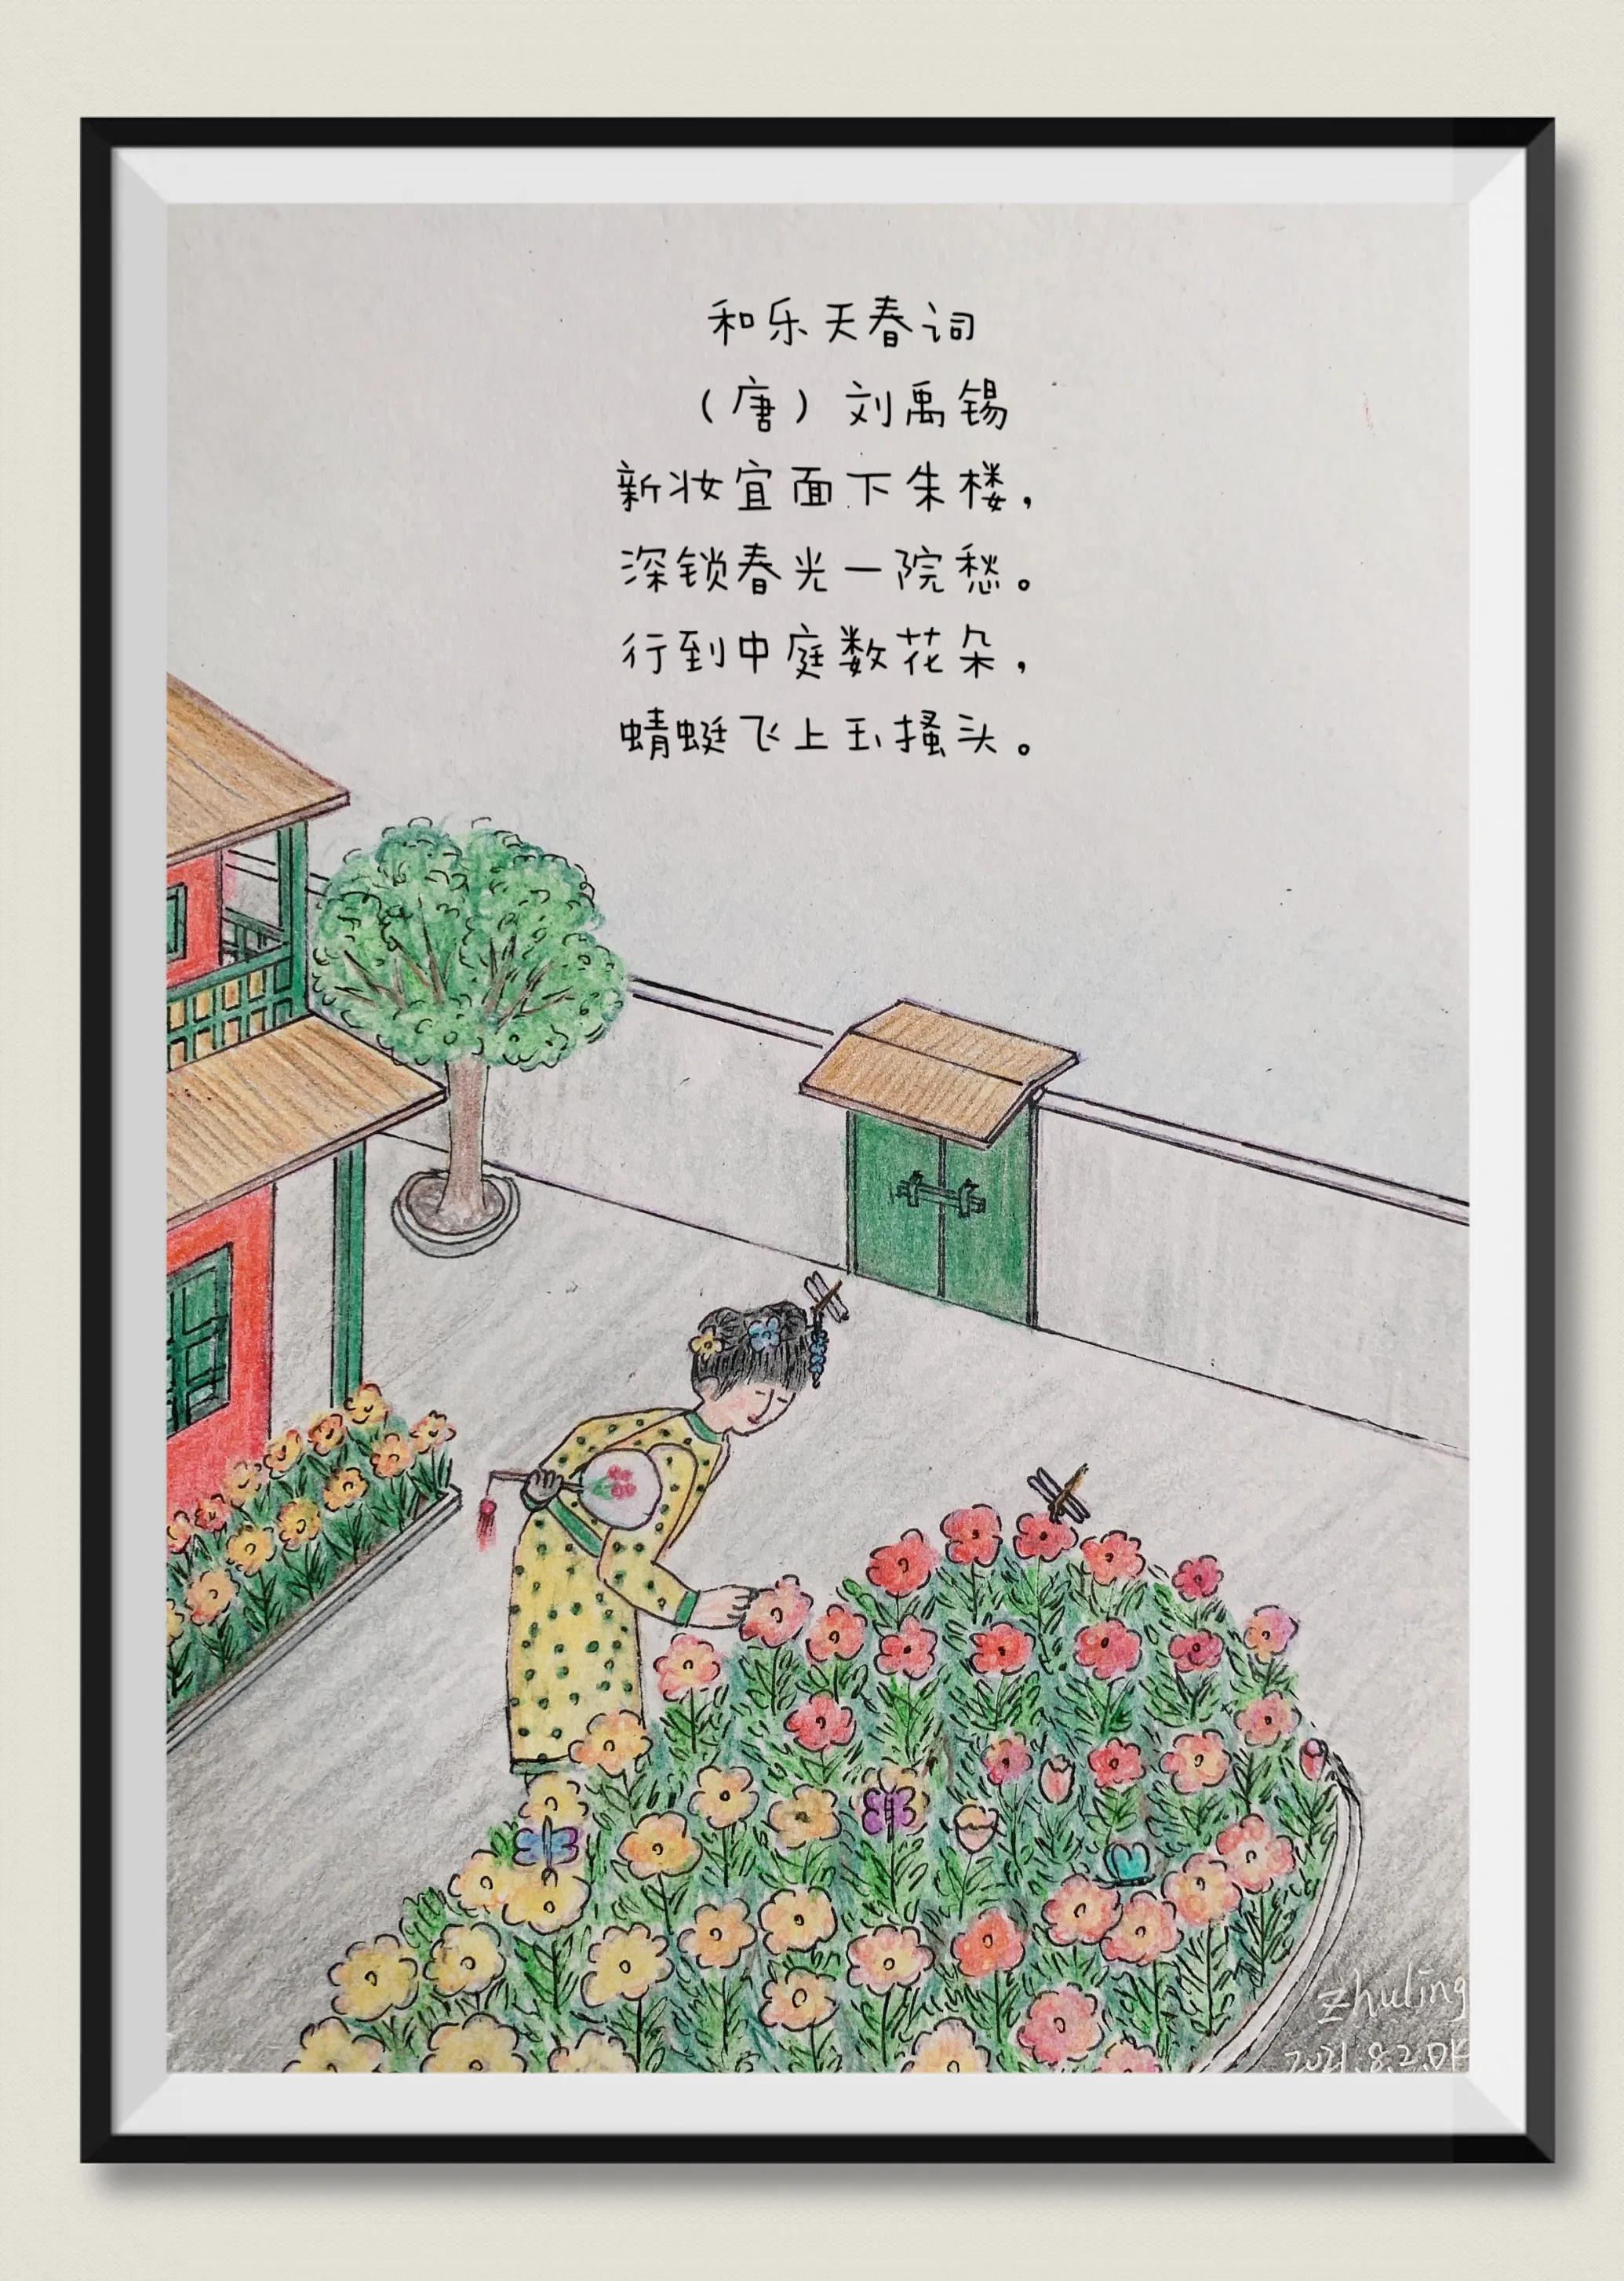 和乐天春词
（唐）刘禹锡
新妆宜面下朱楼，
深锁春光一院愁。
行到中庭数花朵，
蜻蜓飞上玉搔头。
zhuling
2021.8.2.